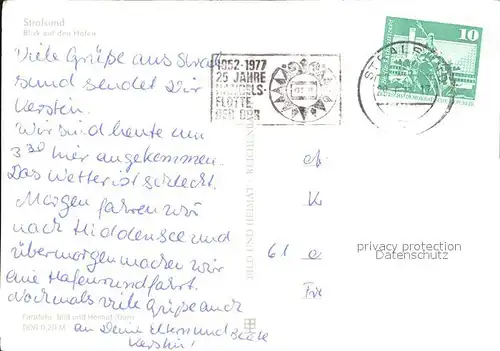 Stralsund
Blick auf den Hafen
Viele Grüße aus Stral
sund sendet Dir
Kerstin.
Wir sind heute um
3 30 hier angekommen.
Das Wetter ist schlecht.
Morgen fahren wir
nach Hiddensee und
übermorgen machen wir
eine Hafenrundfahrt.
Nochmals viele Grüße auch
an Deine Eltern und Beate
Kerstin!
Farbfoto: Bild und Heimat
DDR 0,20 M
BILD UND HEIMAT
1952-1977
25 JAHRE
HANDELS-
FLOTTE
DER DDR
STRALSUND
10
61
privacy protection
Datenschutz